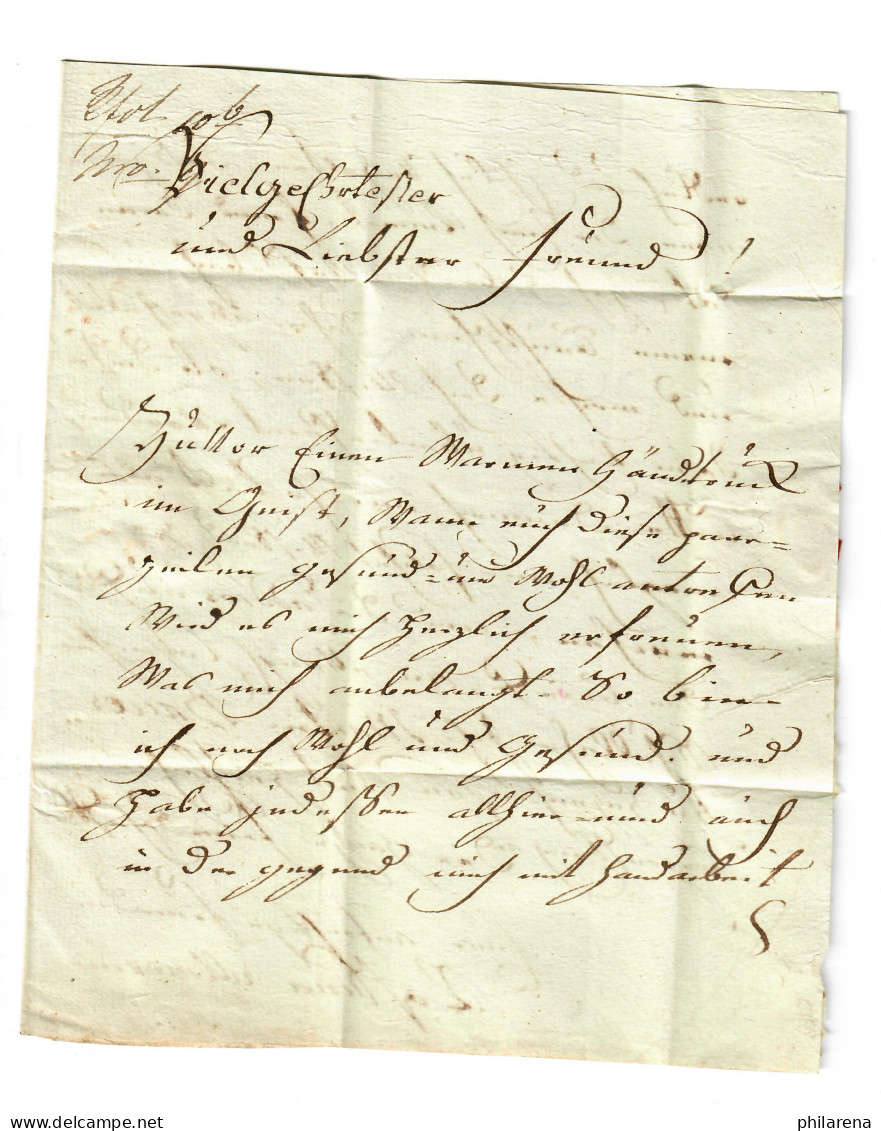 Nro.
Vielgeehrtester
und Liebster Freund!
Einen Warmen Händtruck
im Geist, Wann euch diese paar=
zeilen gesund=und Wohl antreffen
Wird es mich Herzlich erfreuen,
Was mich anbelangt. So bin
ich noch Wohl und Gesund. und
Habe indessen allhier und auch
in der gegend mich mit Handarbeit
www.delcampe.net
philarena